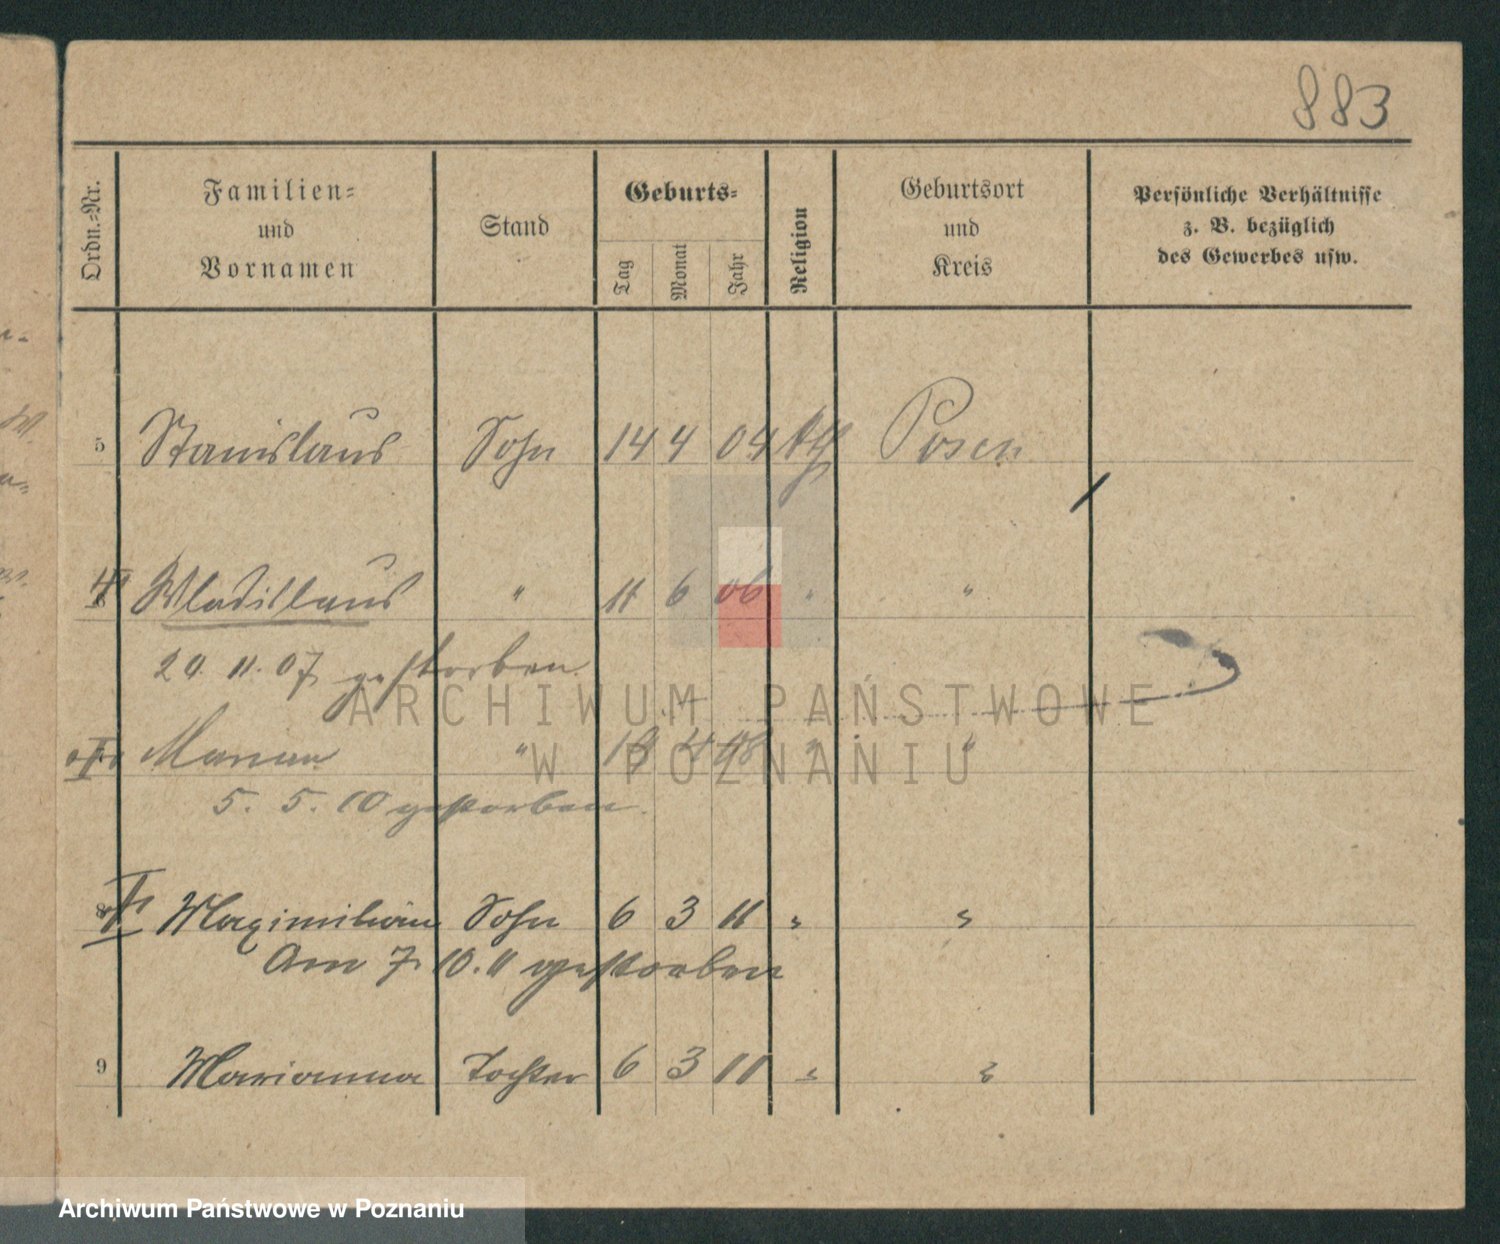 883
Ordn.-Nr.
Familien-
und
Vornamen
Stand
Geburts-
Tag
Monat
Jahr
Religion
Geburtsort
und
Kreis
Persönliche Verhältnisse
z. B. bezüglich
des Gewerbes usw.
5 Stanislaus Sohn 14 4 04 kth Posen
Wladislaus " 11 6 06 " "
29. 11. 07 gestorben
ARCHIWUM PAŃSTWOWE
Marian " 13 4 08 " "
W POZNANIU
5. 5. 10 gestorben.
8 Maximilian Sohn 6 3 11 " "
Am 7. 10. 11 gestorben
9 Marianna Tochter 6 3 11 " "
Archiwum Państwowe w Poznaniu